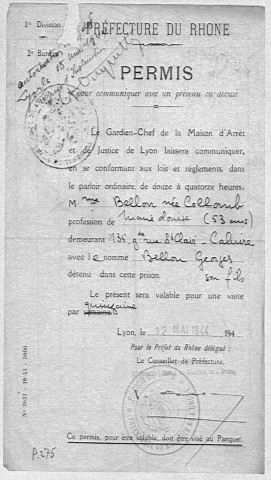 1e Division
PRÉFECTURE DU RHONE
2e Bureau
PERMIS
pour communiquer avec un prévenu ou accusé
Le Gardien-Chef de la Maison d'Arrêt
et de Justice de Lyon laissera communiquer,
en se conformant aux lois et règlements, dans
le parloir ordinaire, de douze à quatorze heures.
Mme Bellon née Collomb
profession de Marie Louise (53 ans)
demeurant 135, gde rue St Clair - Caluire
avec le nommé Bellon Georges
détenu dans cette prison. son fils
Le présent sera valable pour une visite
par quinzaine
Lyon, le 12 MAI 1944 194
Pour le Préfet du Rhône délégué :
Le Conseiller de Préfecture,
Ce permis, pour être valable, doit être visé au Parquet.
P.275